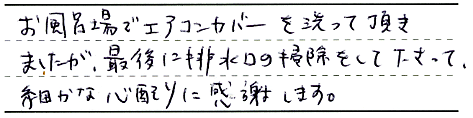 お風呂場でエアコンカバーを洗って頂き
ましたが、最後に排水口の掃除をして下さって、
細かな心配りに感謝します。